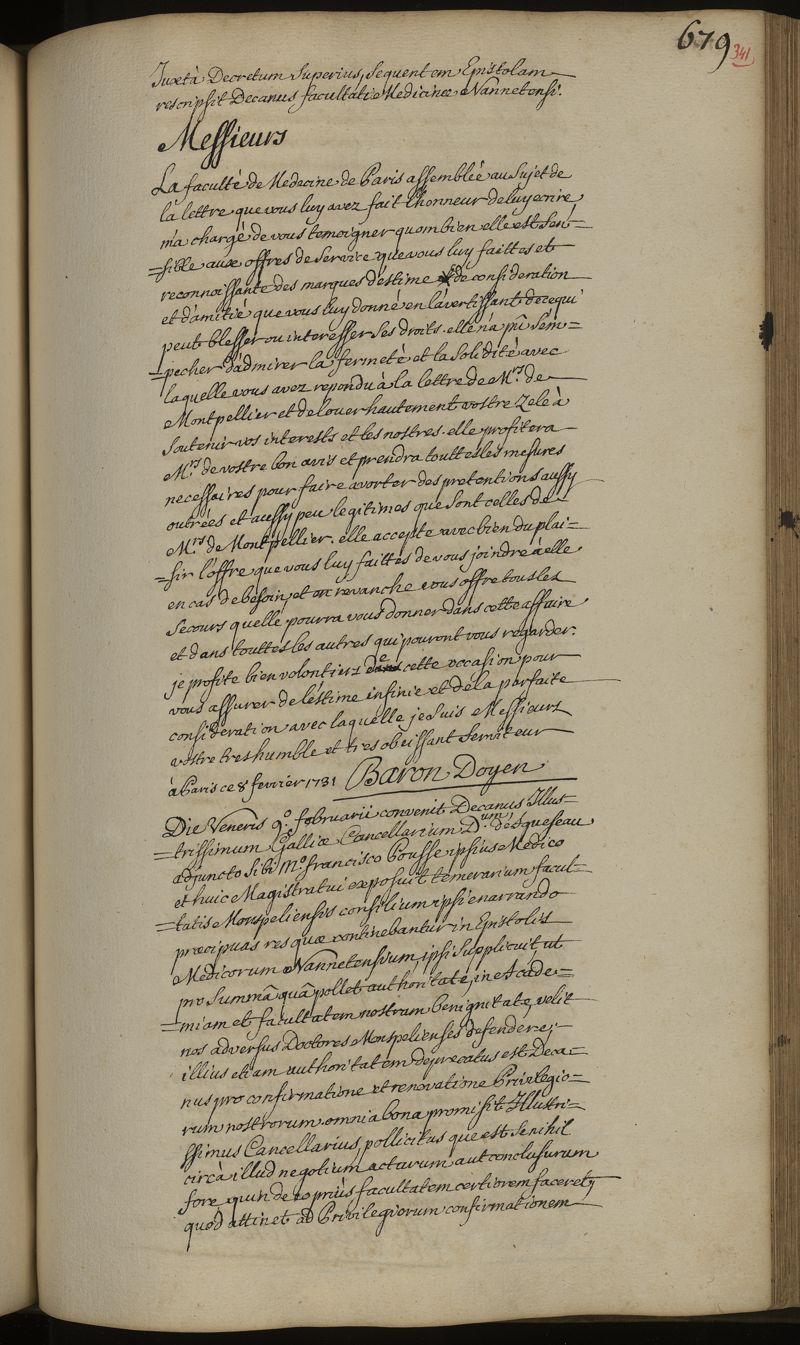 679
341
Juxtà Decretum Superius, Sequentem Epistolam
rescripsit Decanus facultatis Medicinæ Nannetensi.
Messieurs
La faculté de Medecine de Paris assemblée au Sujet de
la lettre que vous luy avez fait l'honneur de luy ecrire,
m'a chargé de vous temoigner quombien elle est Sen=
=sible aux offres de Service que vous luy faittes et
reconnoissante des marques d'estime de consideration
et d'amitié que vous luy donné en l'avertissant de ce qui
peut blesser ou interesser Ses droits. elle n'a pû S'em=
=pecher d'admirer la fermeté et la Solidité avec
laquelle vous avez repondu à la lettre de M.rs de
Montpellier et de louer hautement vostre Zele à
Soutenir vos interests et les nostres. elle profitera
M.rs de vostre bon avis et prendra touttes les mesures
necessaires pour faire avorter des pretentions aussy
outrées et aussy peu legitimes que Sont celles de
M.rs de Montpellier. elle accepte avec bien du plai=
=sir l'offre que vous luy faittes de vous joindre à elle
en cas de besoin, et en revanche vous offre tous les
Secours qu'elle pourra vous donner dans cette affaire
et dans touttes les autres qui pouront vous regarder.
je profite bien volontiers de cette occasion pour
vous assurer de l'estime infinie et de la parfaite
consideration avec laquelle je Suis Messieurs
vostre tres humble et tres obeissant Serviteur
à Paris ce 8 fevrier 1731 Baron Doyen
Die Veneris 9.o februarii convenit Decanus Illus=
=trissimum Galliæ Cancellarium D.um d'esqueseau
adjuncto Sibi M.o francisco Pousse ipsius Medico
et huic Magistratui exposuit temerarium facul=
=tatis Monspeliensis consilium ipsi enarrando
præcipuas res quæ continebantur in Epistolis
Medicorum Nannetensium, ipsi Supplicuit, ut
pro Summâ quâ pollet authoritate, in Acade=
=miam et facultatem nostram benignitate, velit
nos adversus Doctores Monspelienses defendere;
illius etiam authoritatem deprecatus est Deca=
nus pro confirmatione et renovatione Privilegio=
rum nostrorum. omnia bona promisit Illustri=
ssimus Cancellarius, pollicitus que est Se nihil
circà illud negotium actarum aut conclusurum
fore, quin de eo priùs facultatem certiorem faceret;
quod attinet ad Privilegiorum confirmationem